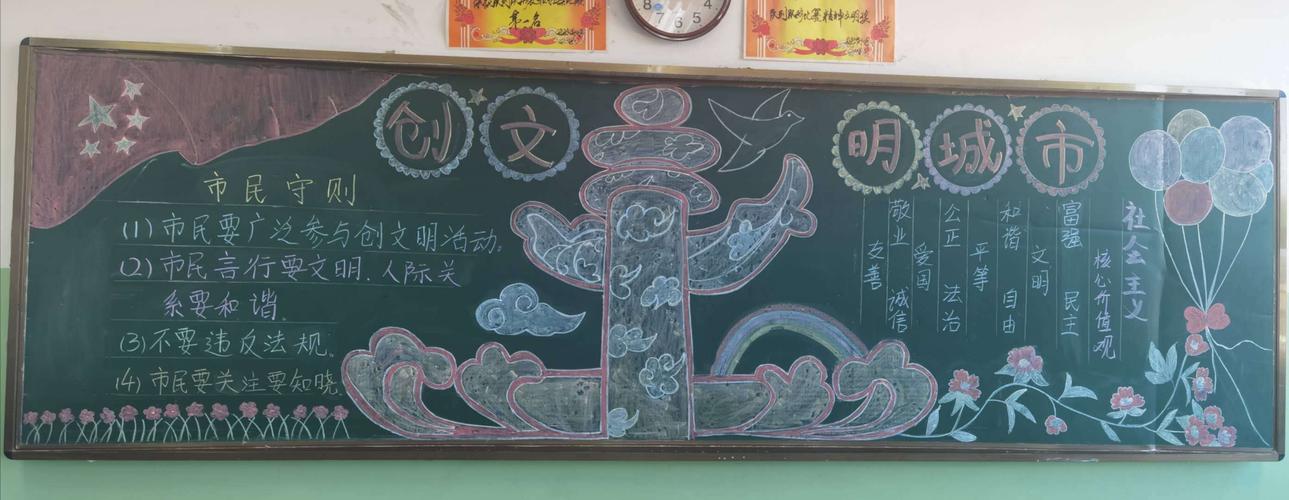 第一名
队列队形比赛精神文明奖
8 7 6 5 4
创文明城市
市民守则
(1)市民要广泛参与创文明活动。
(2)市民言行要文明、人际关
系要和谐。
(3)不要违反法规。
(4)市民要关注要知晓
社会主义
核心价值观
富强 民主
文明
和谐 自由
平等
公正 法治
爱国
敬业 诚信
友善